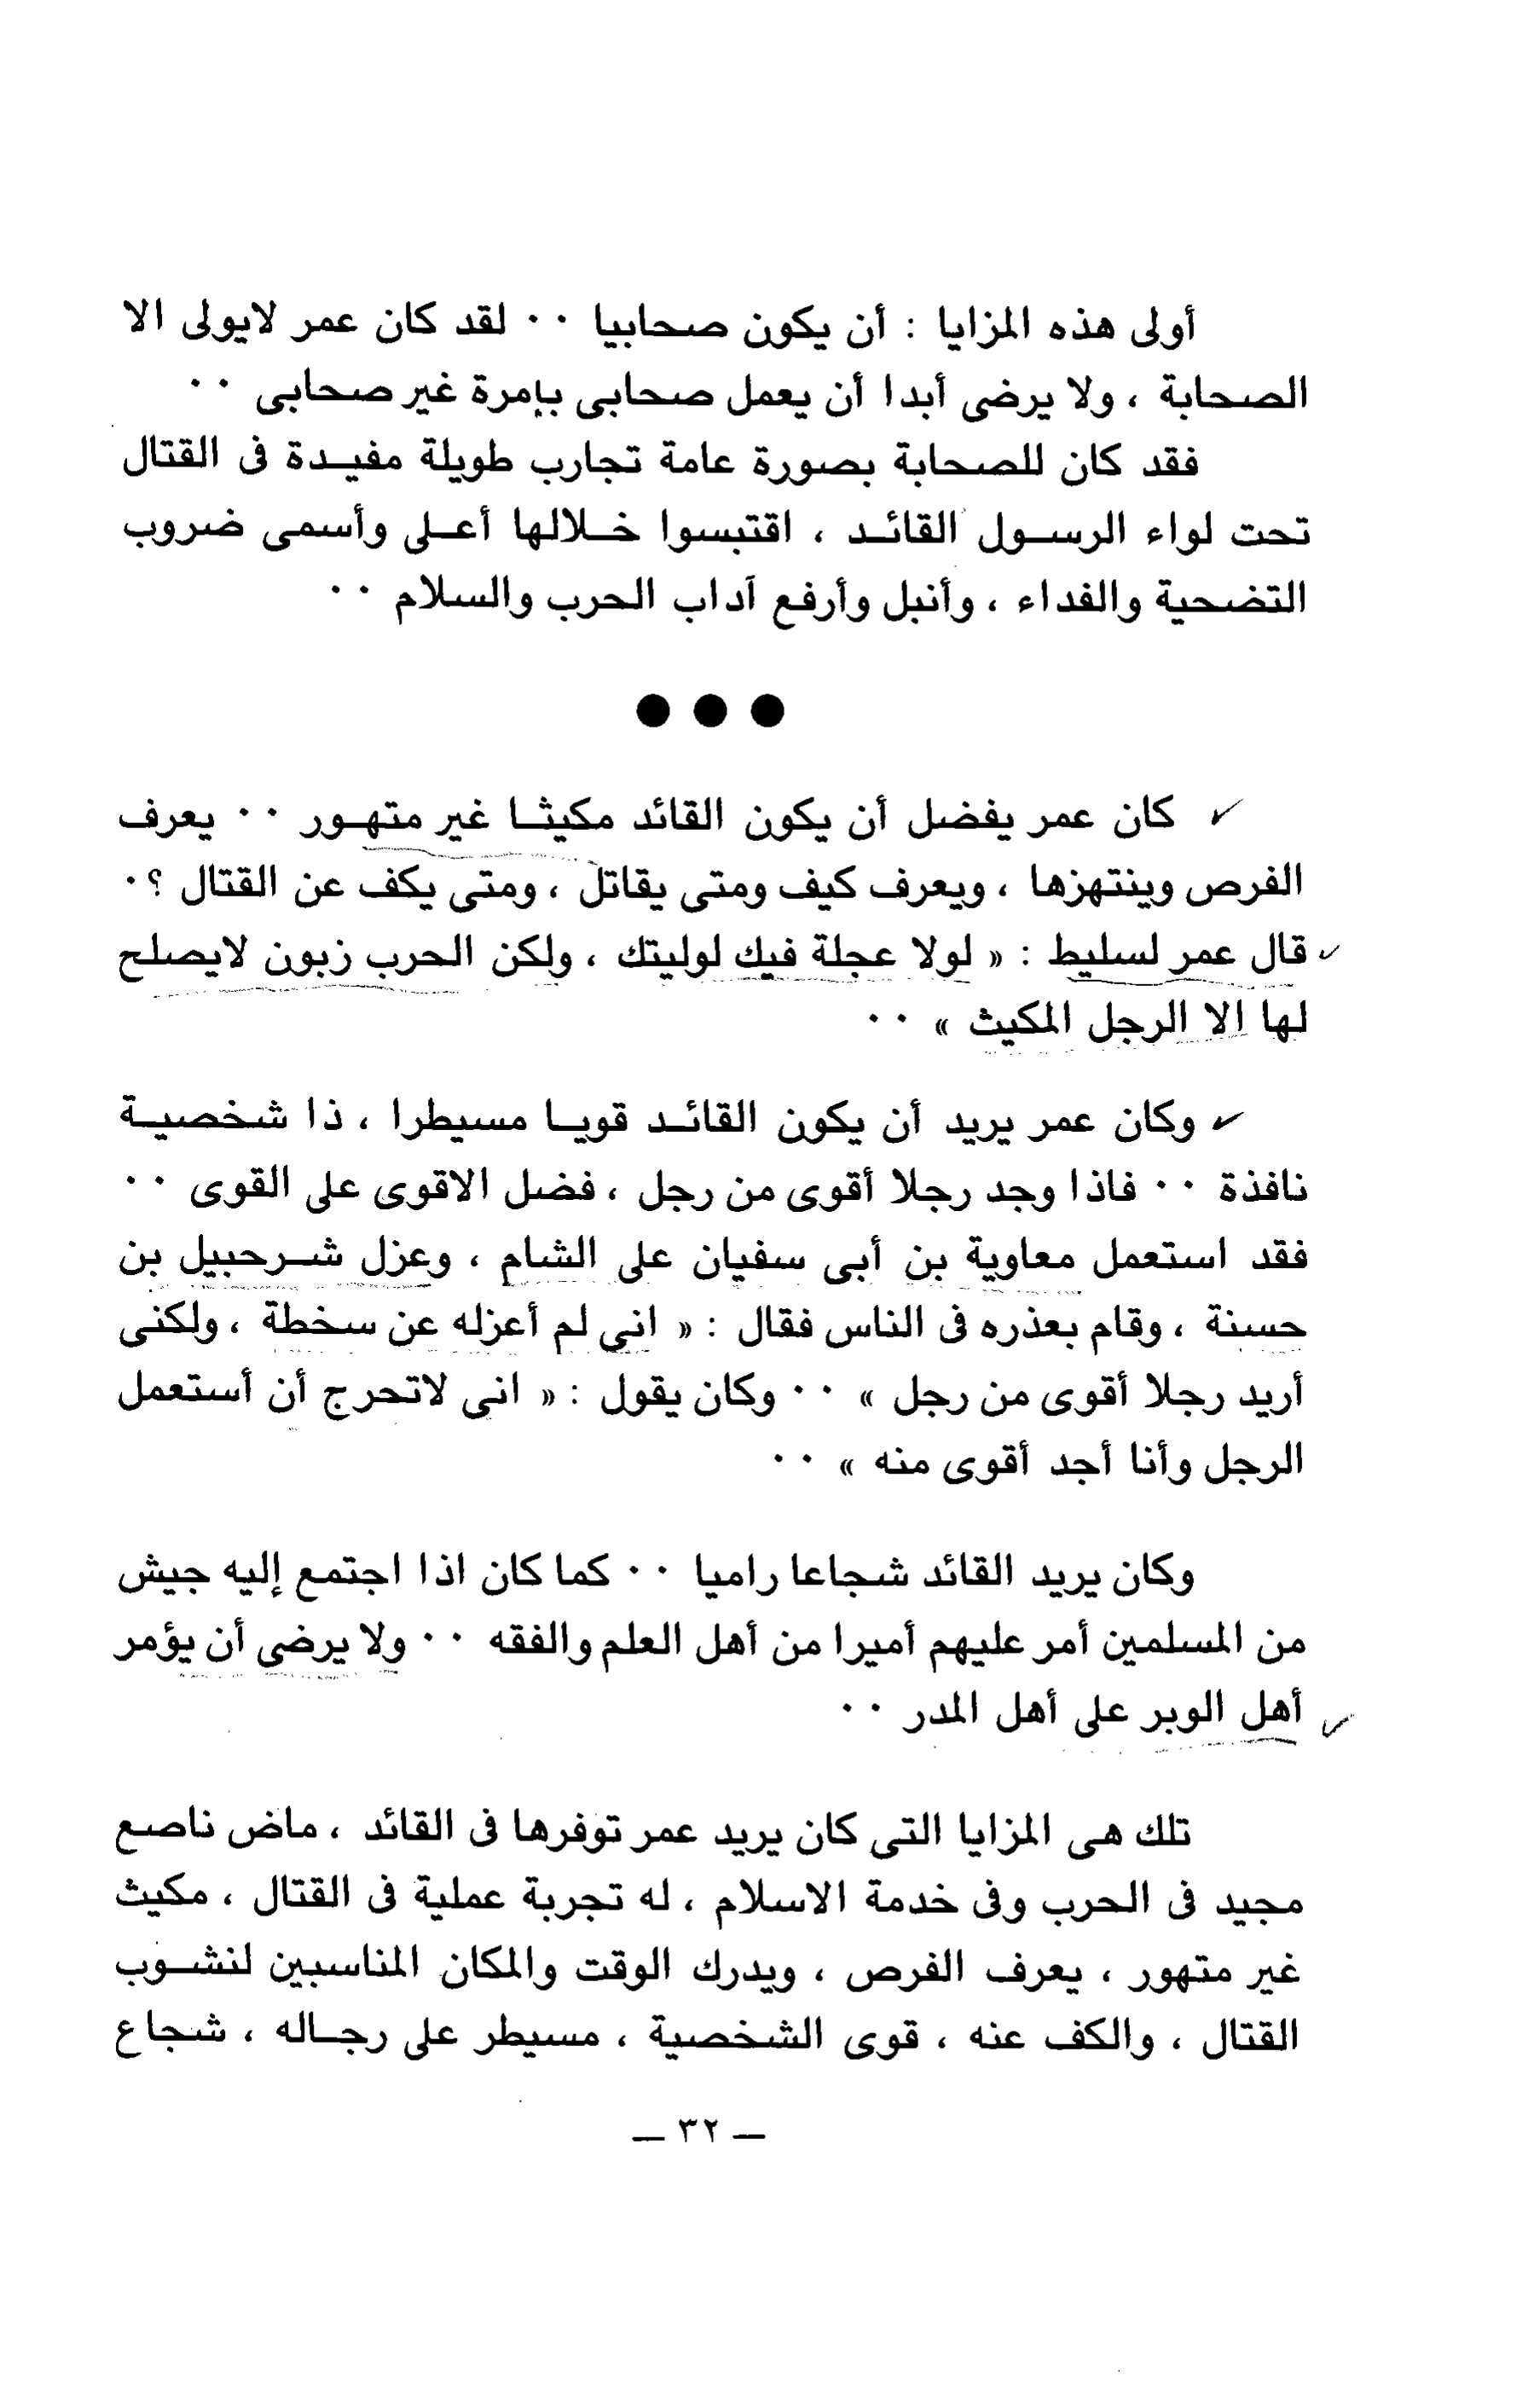 أولى هذه المزايا : أن يكون صحابيا ٠٠ لقد كان عمر لايولى الا
الصحابة ، ولا يرضى أبدا أن يعمل صحابى بإمرة غير صحابى ٠٠
فقد كان للصحابة بصورة عامة تجارب طويلة مفيدة فى القتال
تحت لواء الرسول القائد ، اقتبسوا خلالها أعلى وأسمى ضروب
التضحية والفداء ، وأنبل وأرفع آداب الحرب والسلام ٠٠
● ● ●
✓ كان عمر يفضل أن يكون القائد مكيثا غير متهور ٠٠ يعرف
الفرص وينتهزها ، ويعرف كيف ومتى يقاتل ، ومتى يكف عن القتال ؟٠
✓ قال عمر لسليط : « لولا عجلة فيك لوليتك ، ولكن الحرب زبون لايصلح
لها الا الرجل المكيث » ٠٠
✓ وكان عمر يريد أن يكون القائد قويا مسيطرا ، ذا شخصية
نافذة ٠٠ فاذا وجد رجلا أقوى من رجل ، فضل الاقوى على القوى ٠٠
فقد استعمل معاوية بن أبى سفيان على الشام ، وعزل شرحبيل بن
حسنة ، وقام بعذره فى الناس فقال : « انى لم أعزله عن سخطة ، ولكنى
أريد رجلا أقوى من رجل » ٠٠ وكان يقول : « انى لاتحرج أن أستعمل
الرجل وأنا أجد أقوى منه » ٠٠
وكان يريد القائد شجاعا راميا ٠٠ كما كان اذا اجتمع إليه جيش
من المسلمين أمر عليهم أميرا من أهل العلم والفقه ٠٠ ولا يرضى أن يؤمر
✓ أهل الوبر على أهل المدر ٠٠
تلك هى المزايا التى كان يريد عمر توفرها فى القائد ، ماض ناصع
مجيد فى الحرب وفى خدمة الاسلام ، له تجربة عملية فى القتال ، مكيث
غير متهور ، يعرف الفرص ، ويدرك الوقت والمكان المناسبين لنشوب
القتال ، والكف عنه ، قوى الشخصية ، مسيطر على رجاله ، شجاع
— ٣٢ —